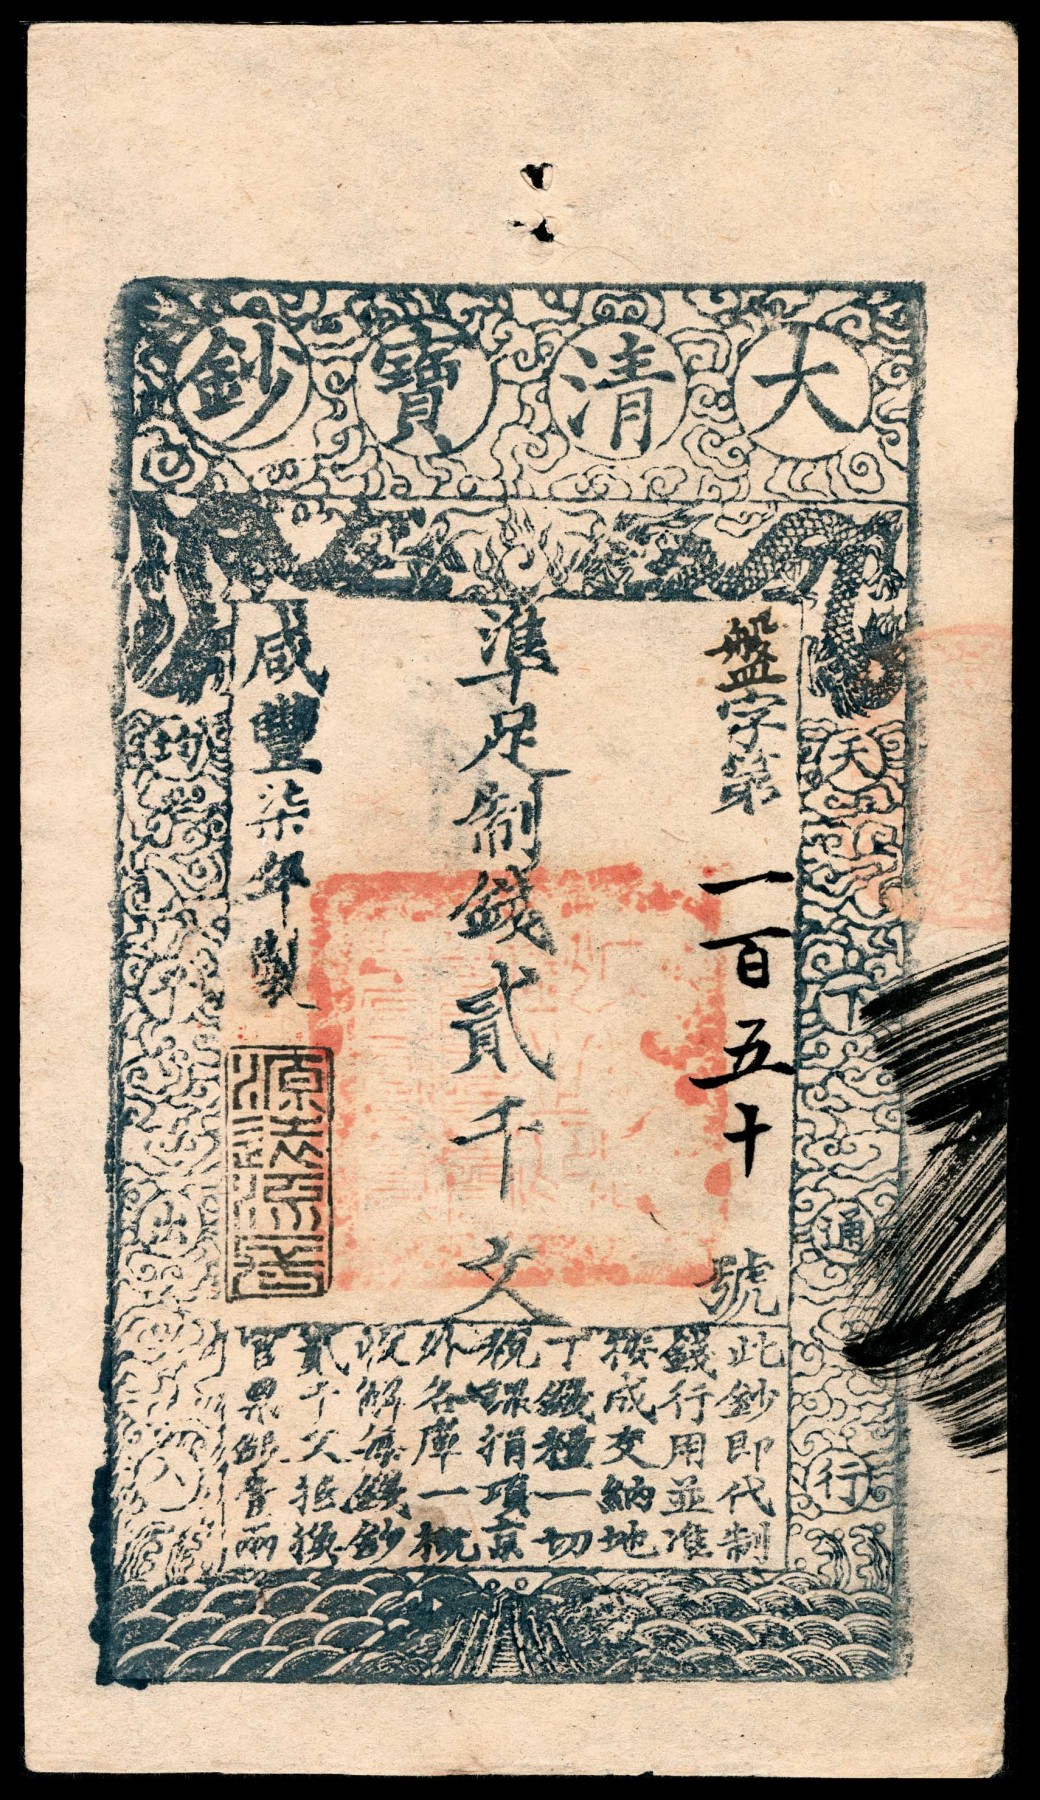 大清寶鈔
盤字第一百五十號
準足制錢貳千文
咸豐柒年製
天下通行
均平出入
此鈔即代制
錢行用並準
按成交納地
丁錢糧一切
稅課捐項京
外各庫一概
收解每錢鈔
貳千文抵換
官票銀壹兩
源遠流長